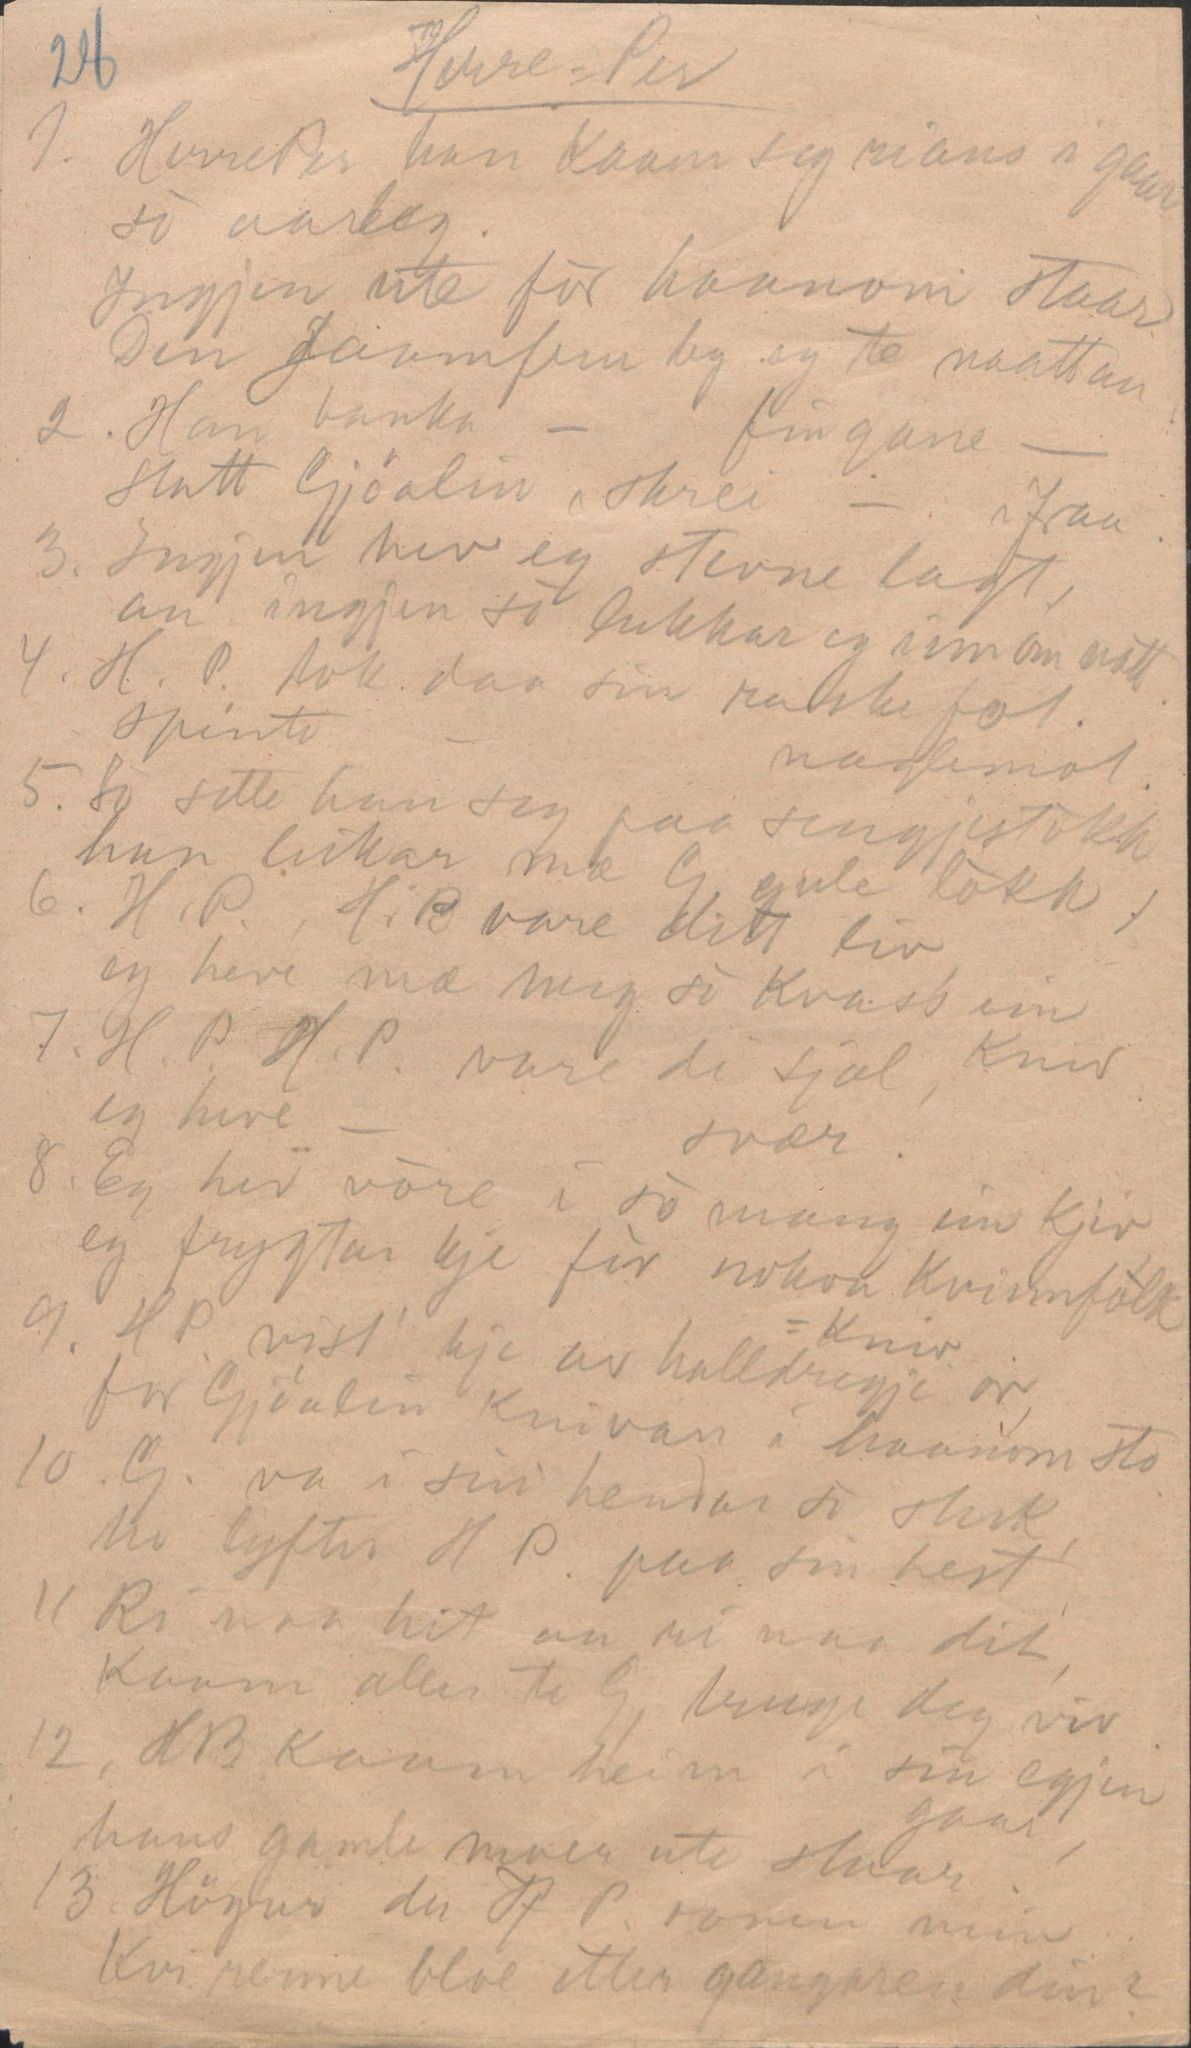 26
Herre-Per
1. Herre Per han kaam seg rians i gaar
so aarleg.
Ingjen ute för haanom staar
Den Jaamfru lyg eg te naattan
2. Han banka — fingane —
statt Gjöalin, skrei — ifraa.
3. Ingjen hev eg stevne lagt,
an ingjen so lukkar eg inn om nött.
4. H. P. tok daa sin raske fot.
spente — naglemot.
5. So sette han seg paa sengjestokk
han leikar mæ G. gule lokk,
6. H. P., H. P. vare ditt liv,
eg heve mæ meg so kvass ein
kniv
7. H. P. H. P. vare di sjæl,
eg heve — svær.
8. Eg hev vöre i so mang ein kjiv,
eg frygtar kje för nokon kvinnfolk
= kniv
9. H P. visst' kje av halldregje or,
för Gjöalin knivan i haanom sto
10. G. va i sin hendar so sterk,
ho lyfter H P. paa sin hest
11 Ri naa hit an ri naa dit,
Kaam aller te G. truge deg viv.
12. H P. kaam heim i sin egjen
gaar,
hans gamle moer ute staar.
13. Höyrer du H P. sonen min
Kvi renne bloe etter gangaren din?